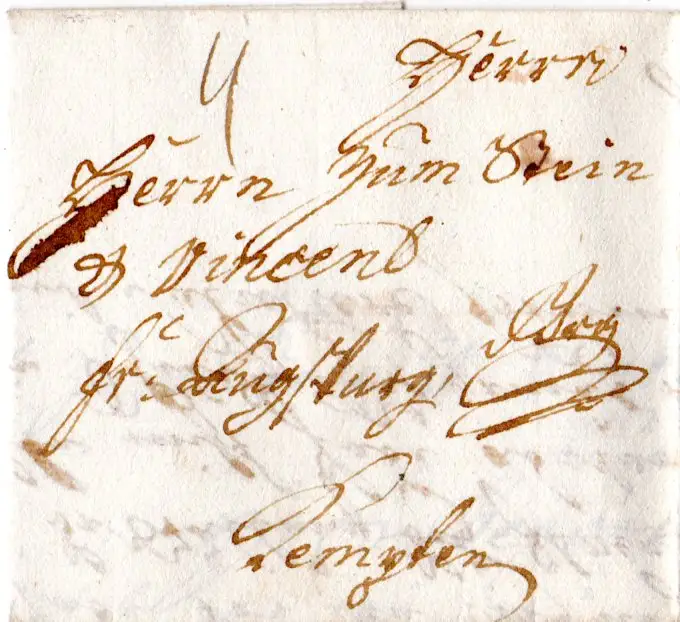 Herrn
Herrn Zum Stein
& Vincend
fr: Augspurg,
Kempten